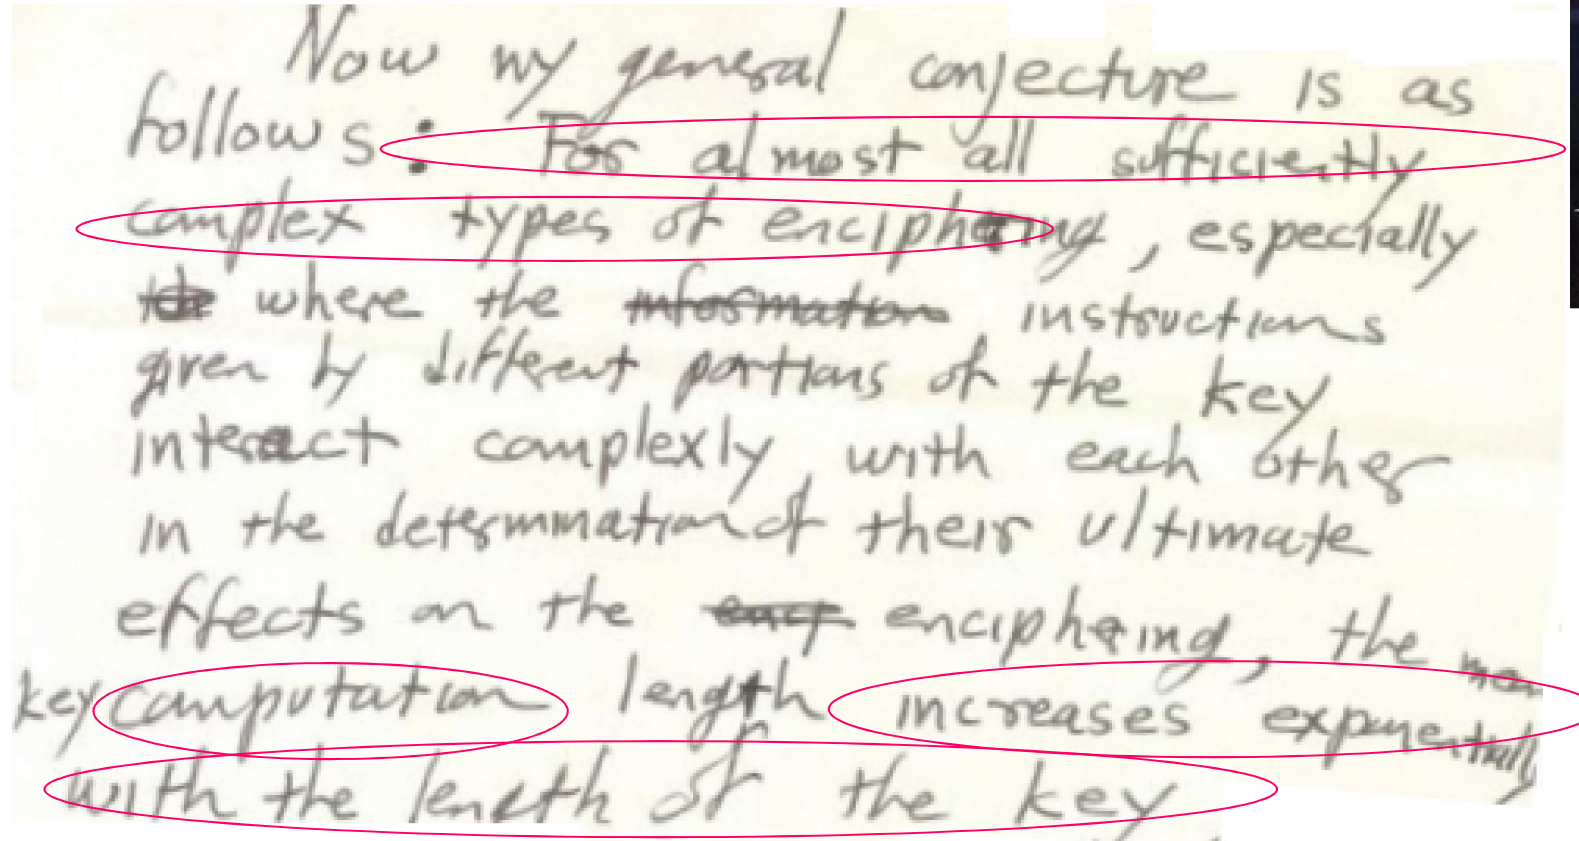 Now my general conjecture is as
follows: For almost all sufficiently
complex types of enciphering, especially
where the information instructions
given by different portions of the key
interact complexly with each other
in the determination of their ultimate
effects on the enciphering, the mean
key computation length increases exponentially
with the length of the key